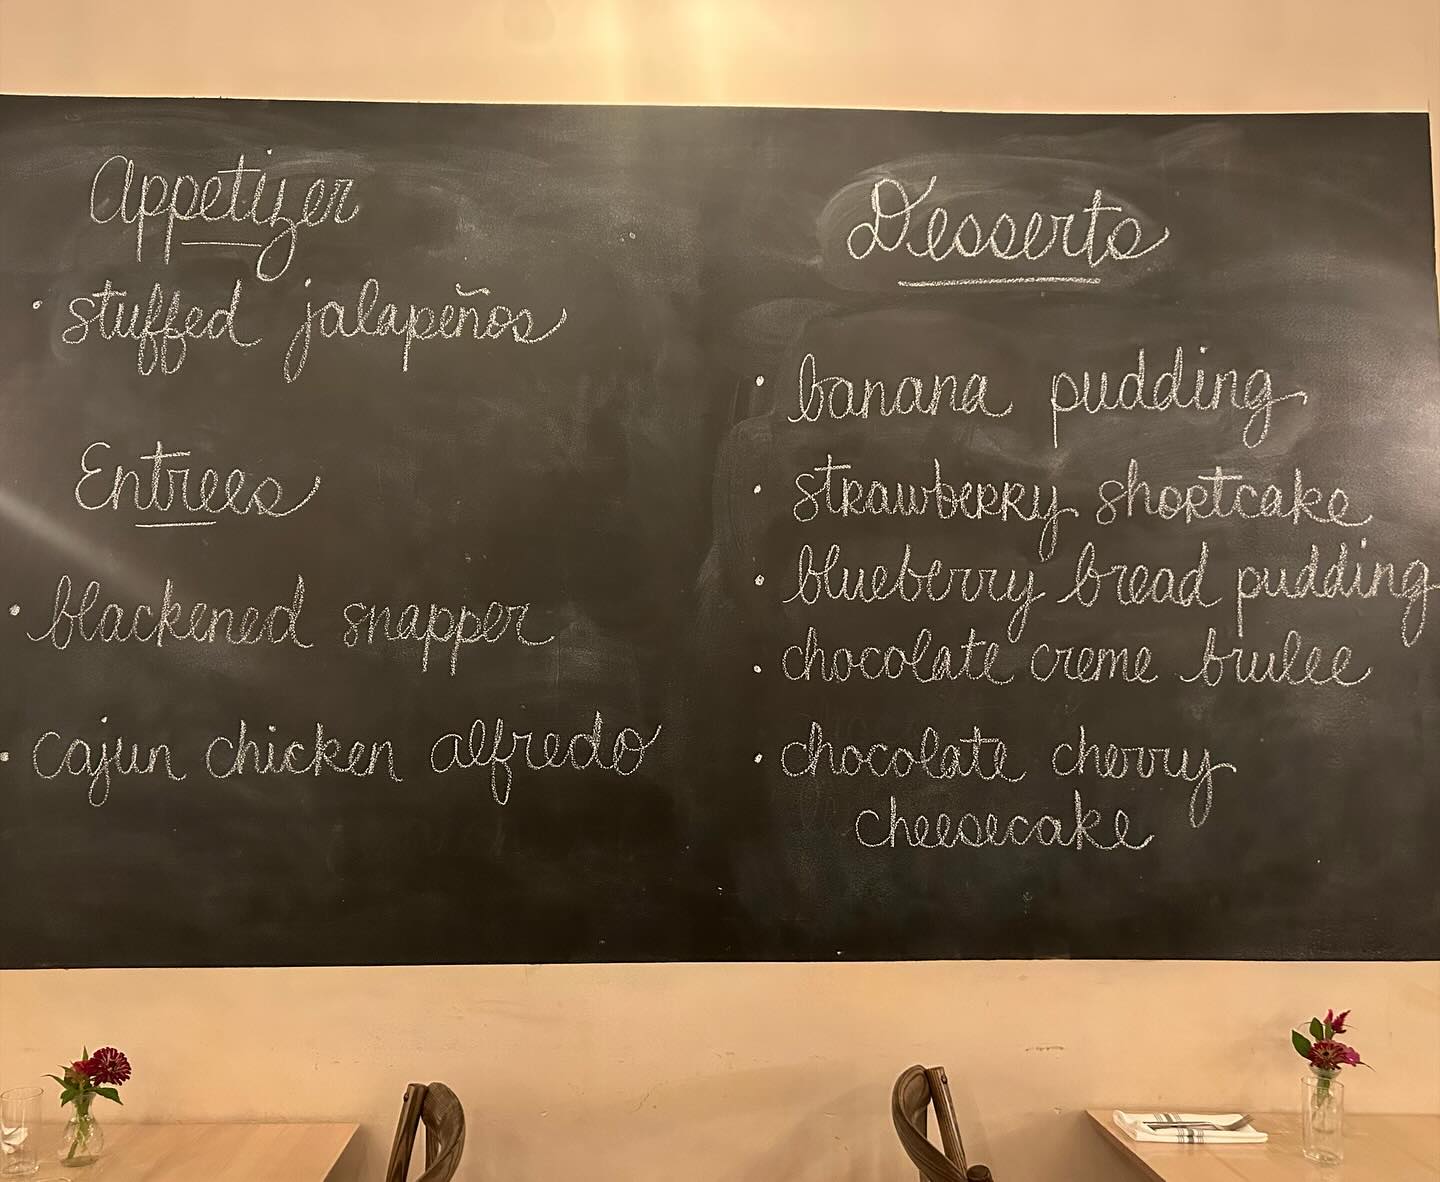 Appetizer
• stuffed jalapeños
Entrees
• blackened snapper
• cajun chicken alfredo
Desserts
• banana pudding
• strawberry shortcake
• blueberry bread pudding
• chocolate creme brulee
• chocolate cherry
cheesecake